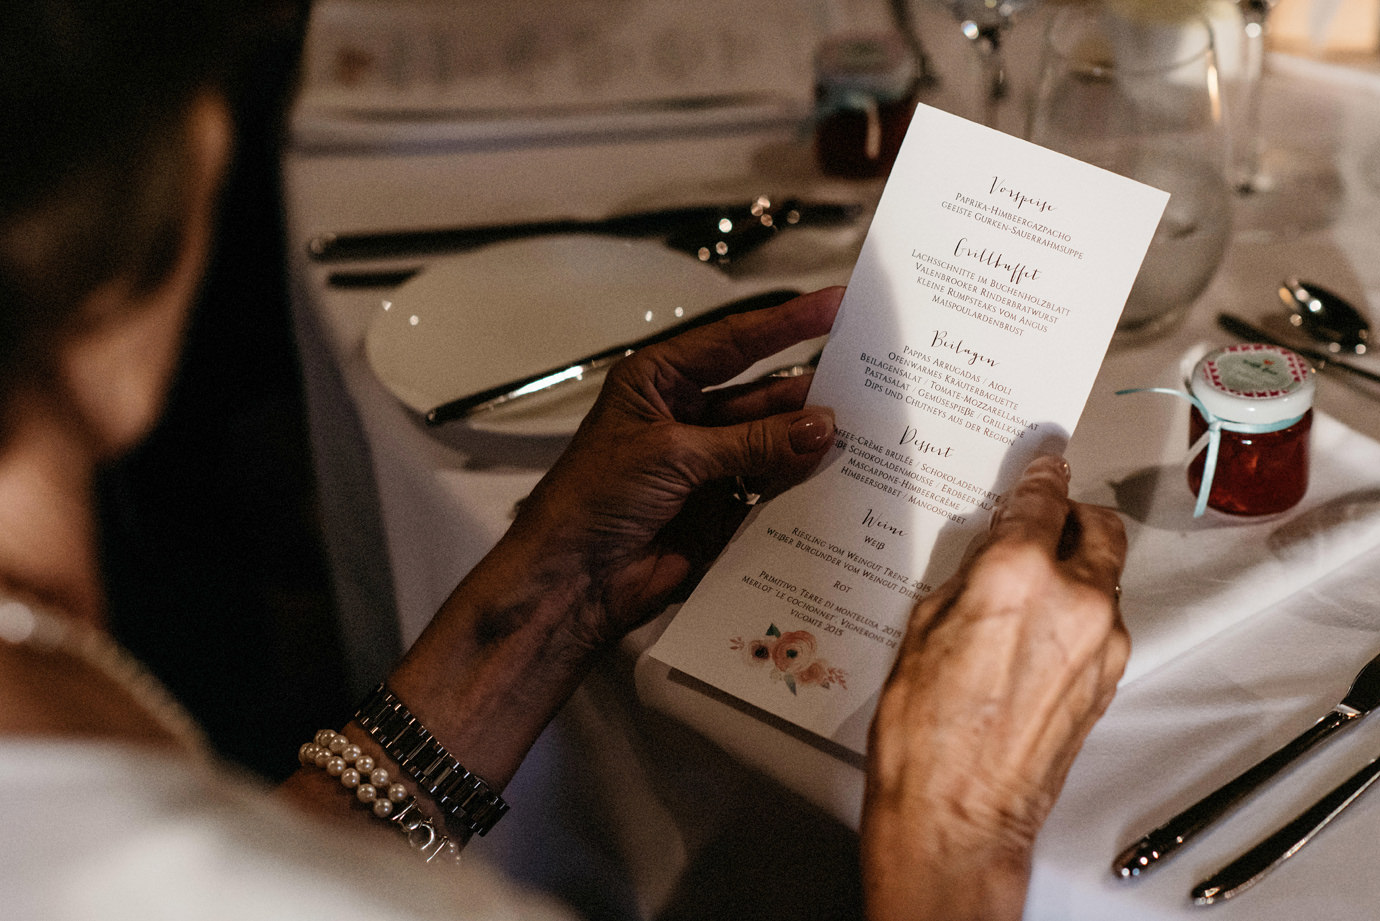 Vorspeise
Paprika-Himbeergazpacho
geeiste Gurken-Sauerrahmsuppe
Grillbuffet
Lachsschnitte im Buchenholzblatt
Valenbrooker Rinderbratwurst
kleine Rumpsteaks vom Angus
Maispoulardenbrust
Beilagen
Pappas Arrugadas / Aioli
Ofenwarmes Kräuterbaguette
Beilagensalat / Tomate-Mozzarellasalat
Pastasalat / Gemüsespieße / Grillkäse
Dips und Chutneys aus der Region
Dessert
-Crème brulée / Schokoladentarte
Schokoladenmousse / Erdbeersala
Mascarpone-Himbeercrème /
Himbeersorbet / Mangosorbet
Weine
Weiß
Riesling vom Weingut Trenz, 2015
Weißer Burgunder vom Weingut
Rot
Primitivo, Terre di Montelusa, 2015
Merlot "Le Cochonnet", Vignerons de
Vicomte 2015